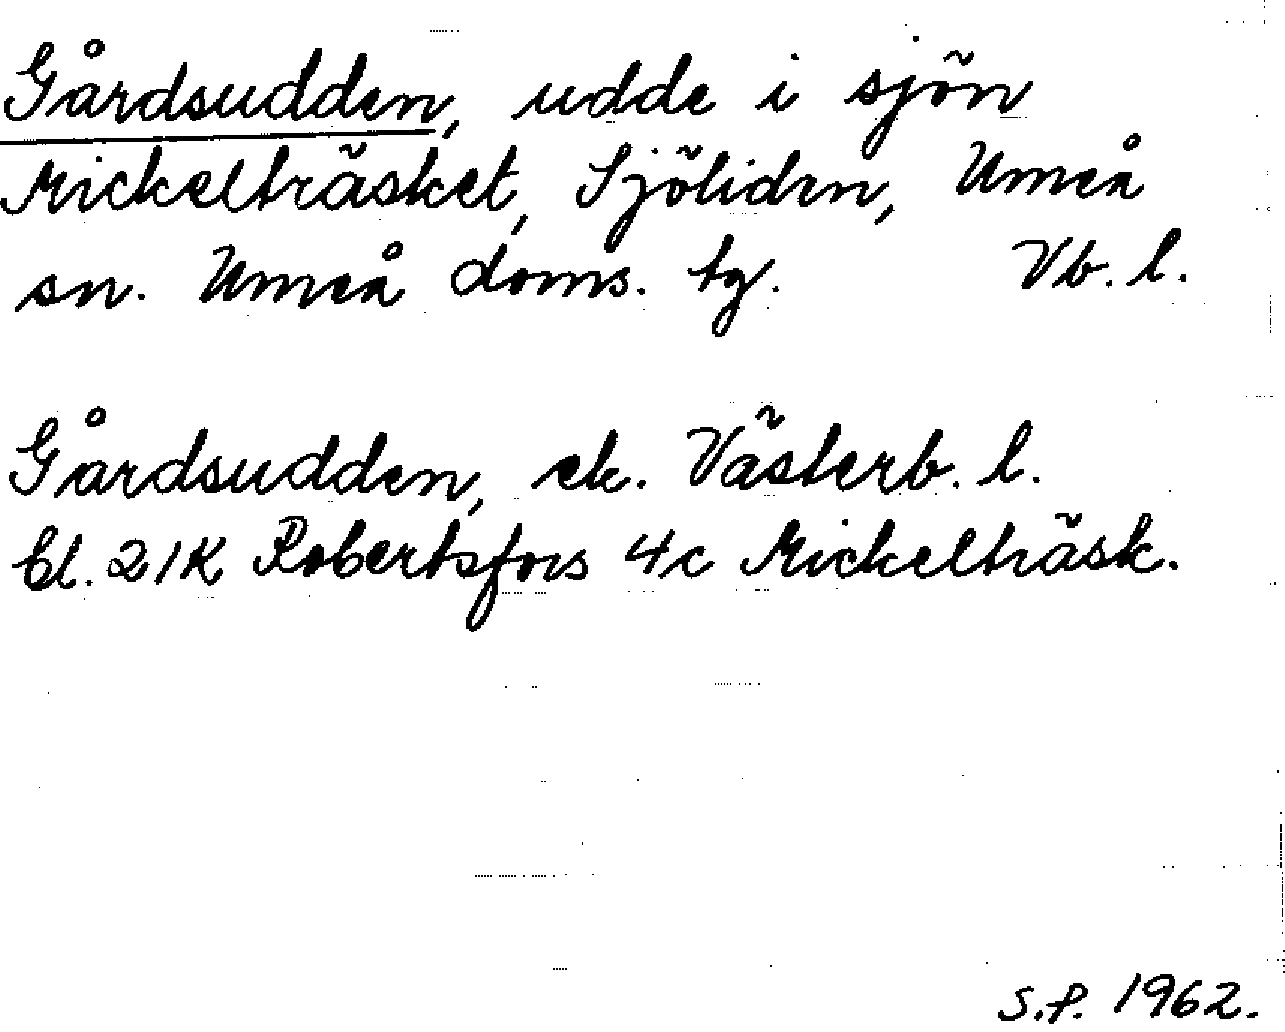 Gårdsudden, udde i sjön
Mickelträsket, Sjöliden, Umeå
sn. Umeå doms. tg. Vb. l.
Gårdsudden, ek. Västerb. l.
bl. 21K Robertsfors 4c Mickelträsk.
S.P. 1962.